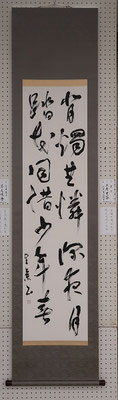 背燭共憐深夜月
踏花同惜少年春